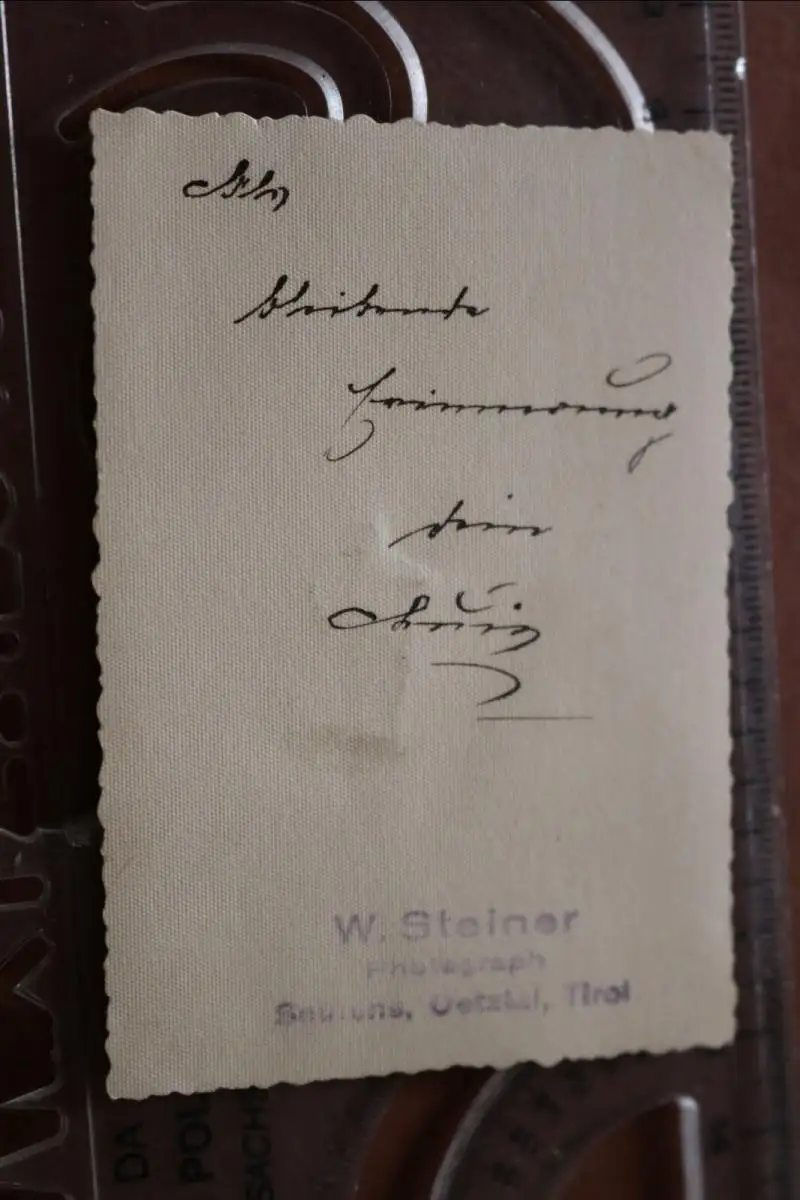 Als
bleibende
Erinnerung
dein
W. Steiner
Photograph
Sautens, Oetztal, Tirol
DA